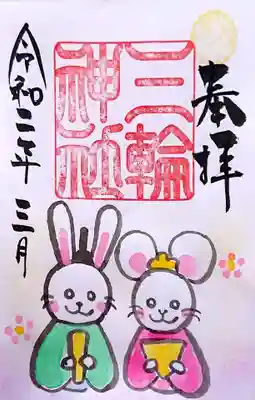 奉拝
三輪
神社
令和二年 三月